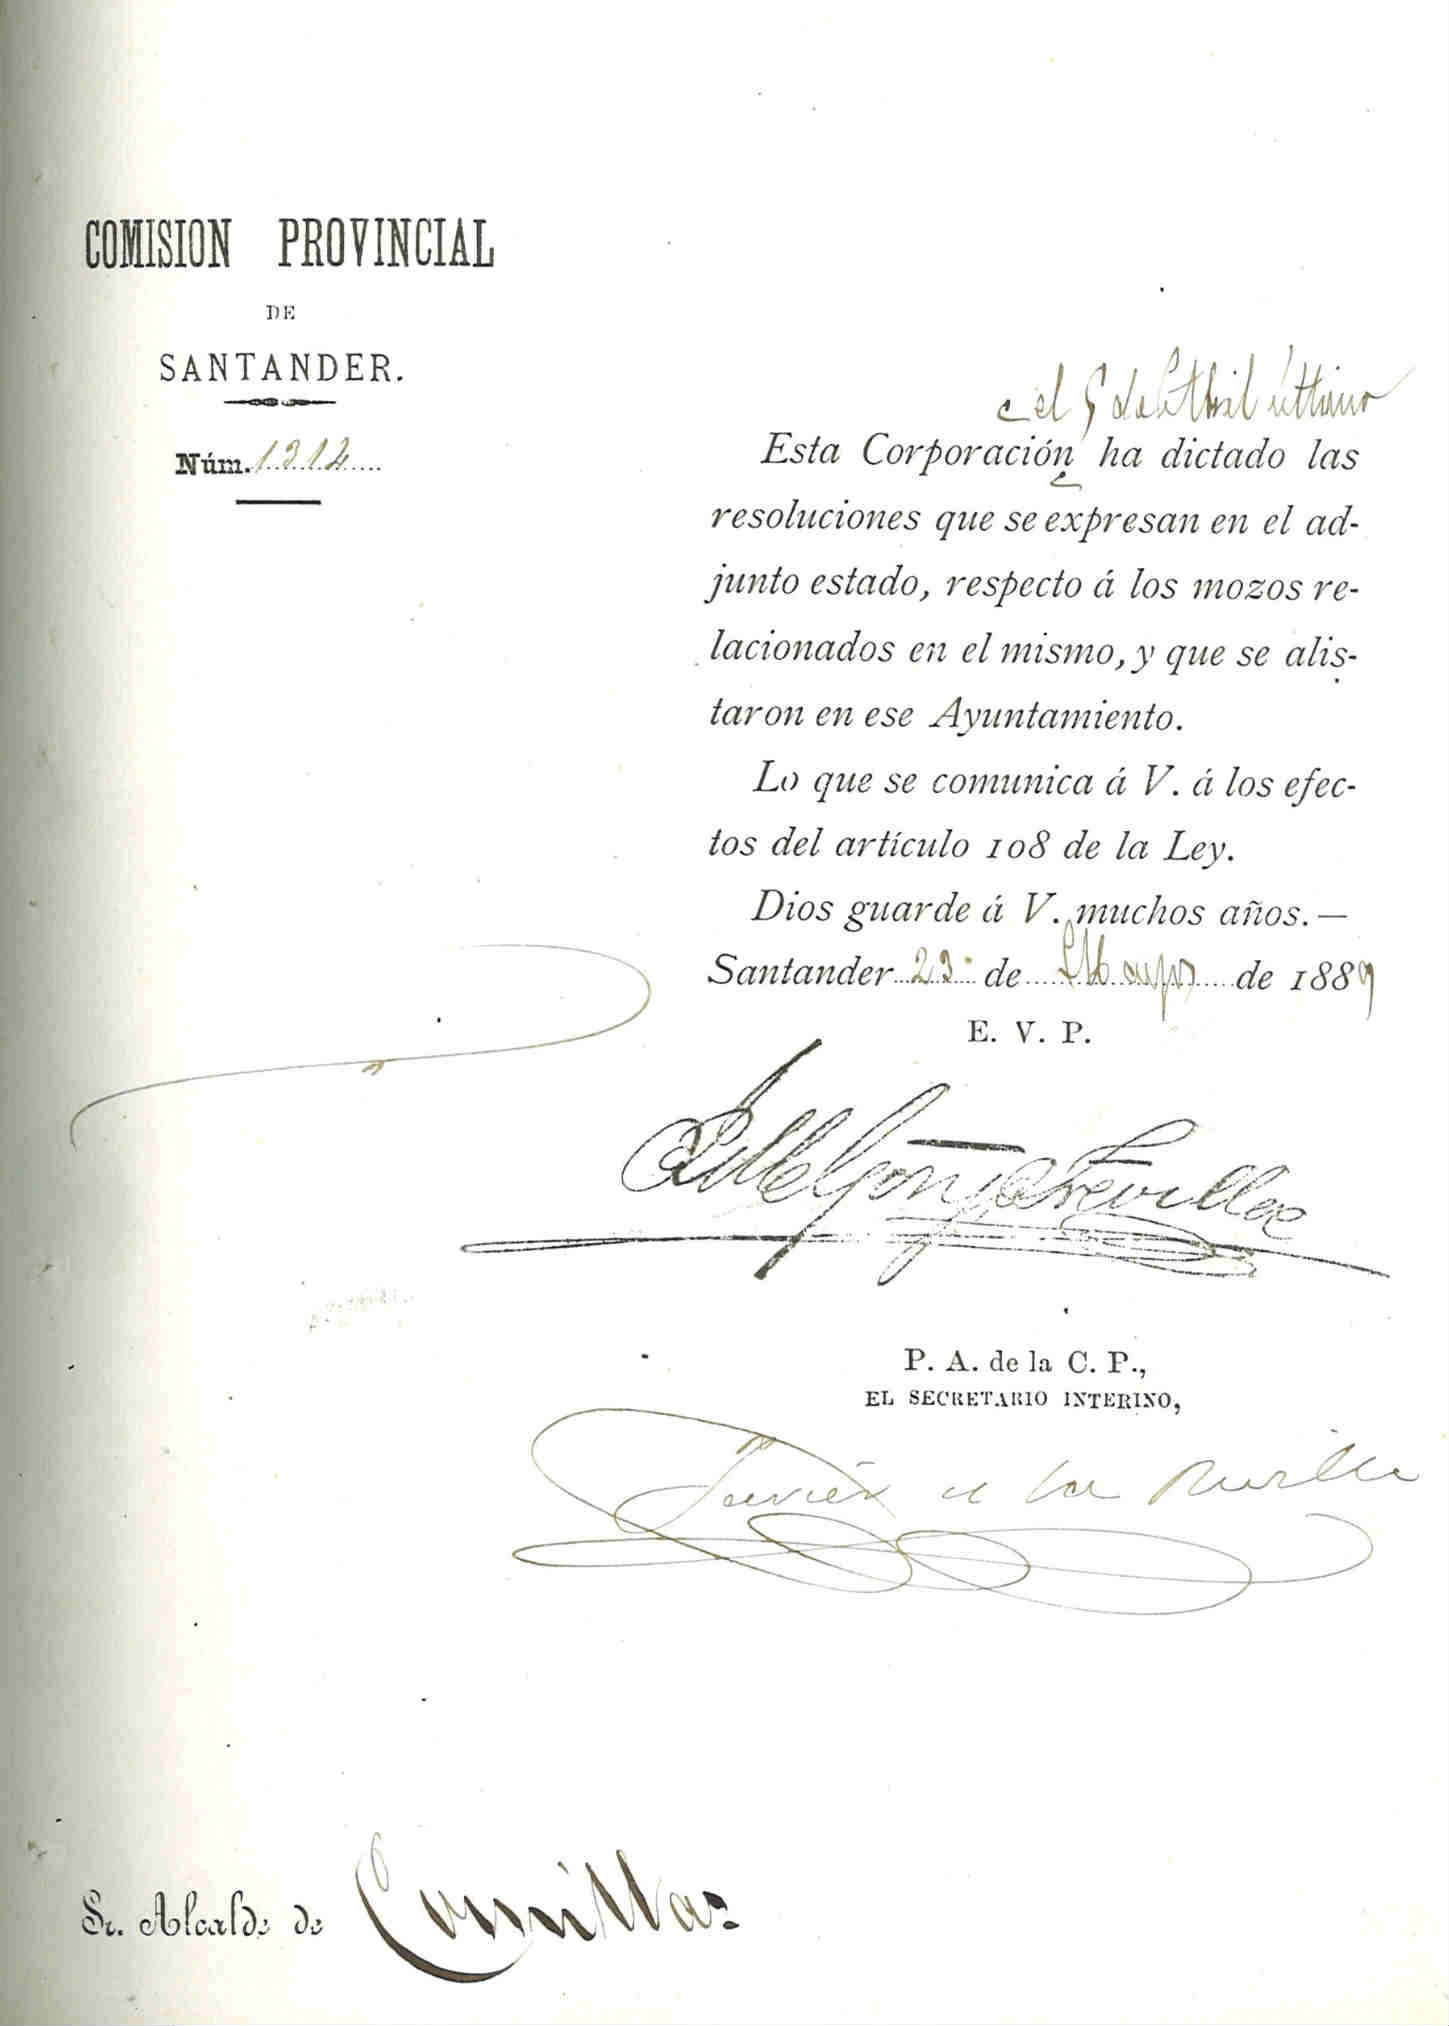 COMISION PROVINCIAL
DE
SANTANDER.
Núm. 1312
el 5 de Abril último
Esta Corporación ha dictado las
resoluciones que se expresan en el ad-
junto estado, respecto á los mozos re-
lacionados en el mismo, y que se alis-
taron en ese Ayuntamiento.
Lo que se comunica á V. á los efec-
tos del artículo 108 de la Ley.
Dios guarde á V. muchos años.—
Santander 23 de Mayo de 1889
E. V. P.
P. A. de la C. P.,
EL SECRETARIO INTERINO,
Javier de la Revilla
Sr. Alcalde de Comillas